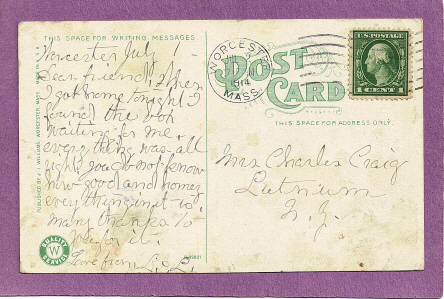 THIS SPACE FOR WRITING MESSAGES
Worcester July 1-
Dear friend, When
I got home tonight I
found the box
waiting for me,
every thing was all
right, you do not know
how good and homey
every thing in it is.
many thanks to
you for it.
Love from L. L.
PUBLISHED BY J. I. WILLIAMS, WORCESTER, MASS.
MADE IN U.S.A.
QUALITY
W
SERVICE
WORCESTER
1914
MASS.
POST
CARD
THIS SPACE FOR ADDRESS ONLY.
U.S. POSTAGE
1 CENT 1
Mrs Charles Craig
Putnam
N.Y.